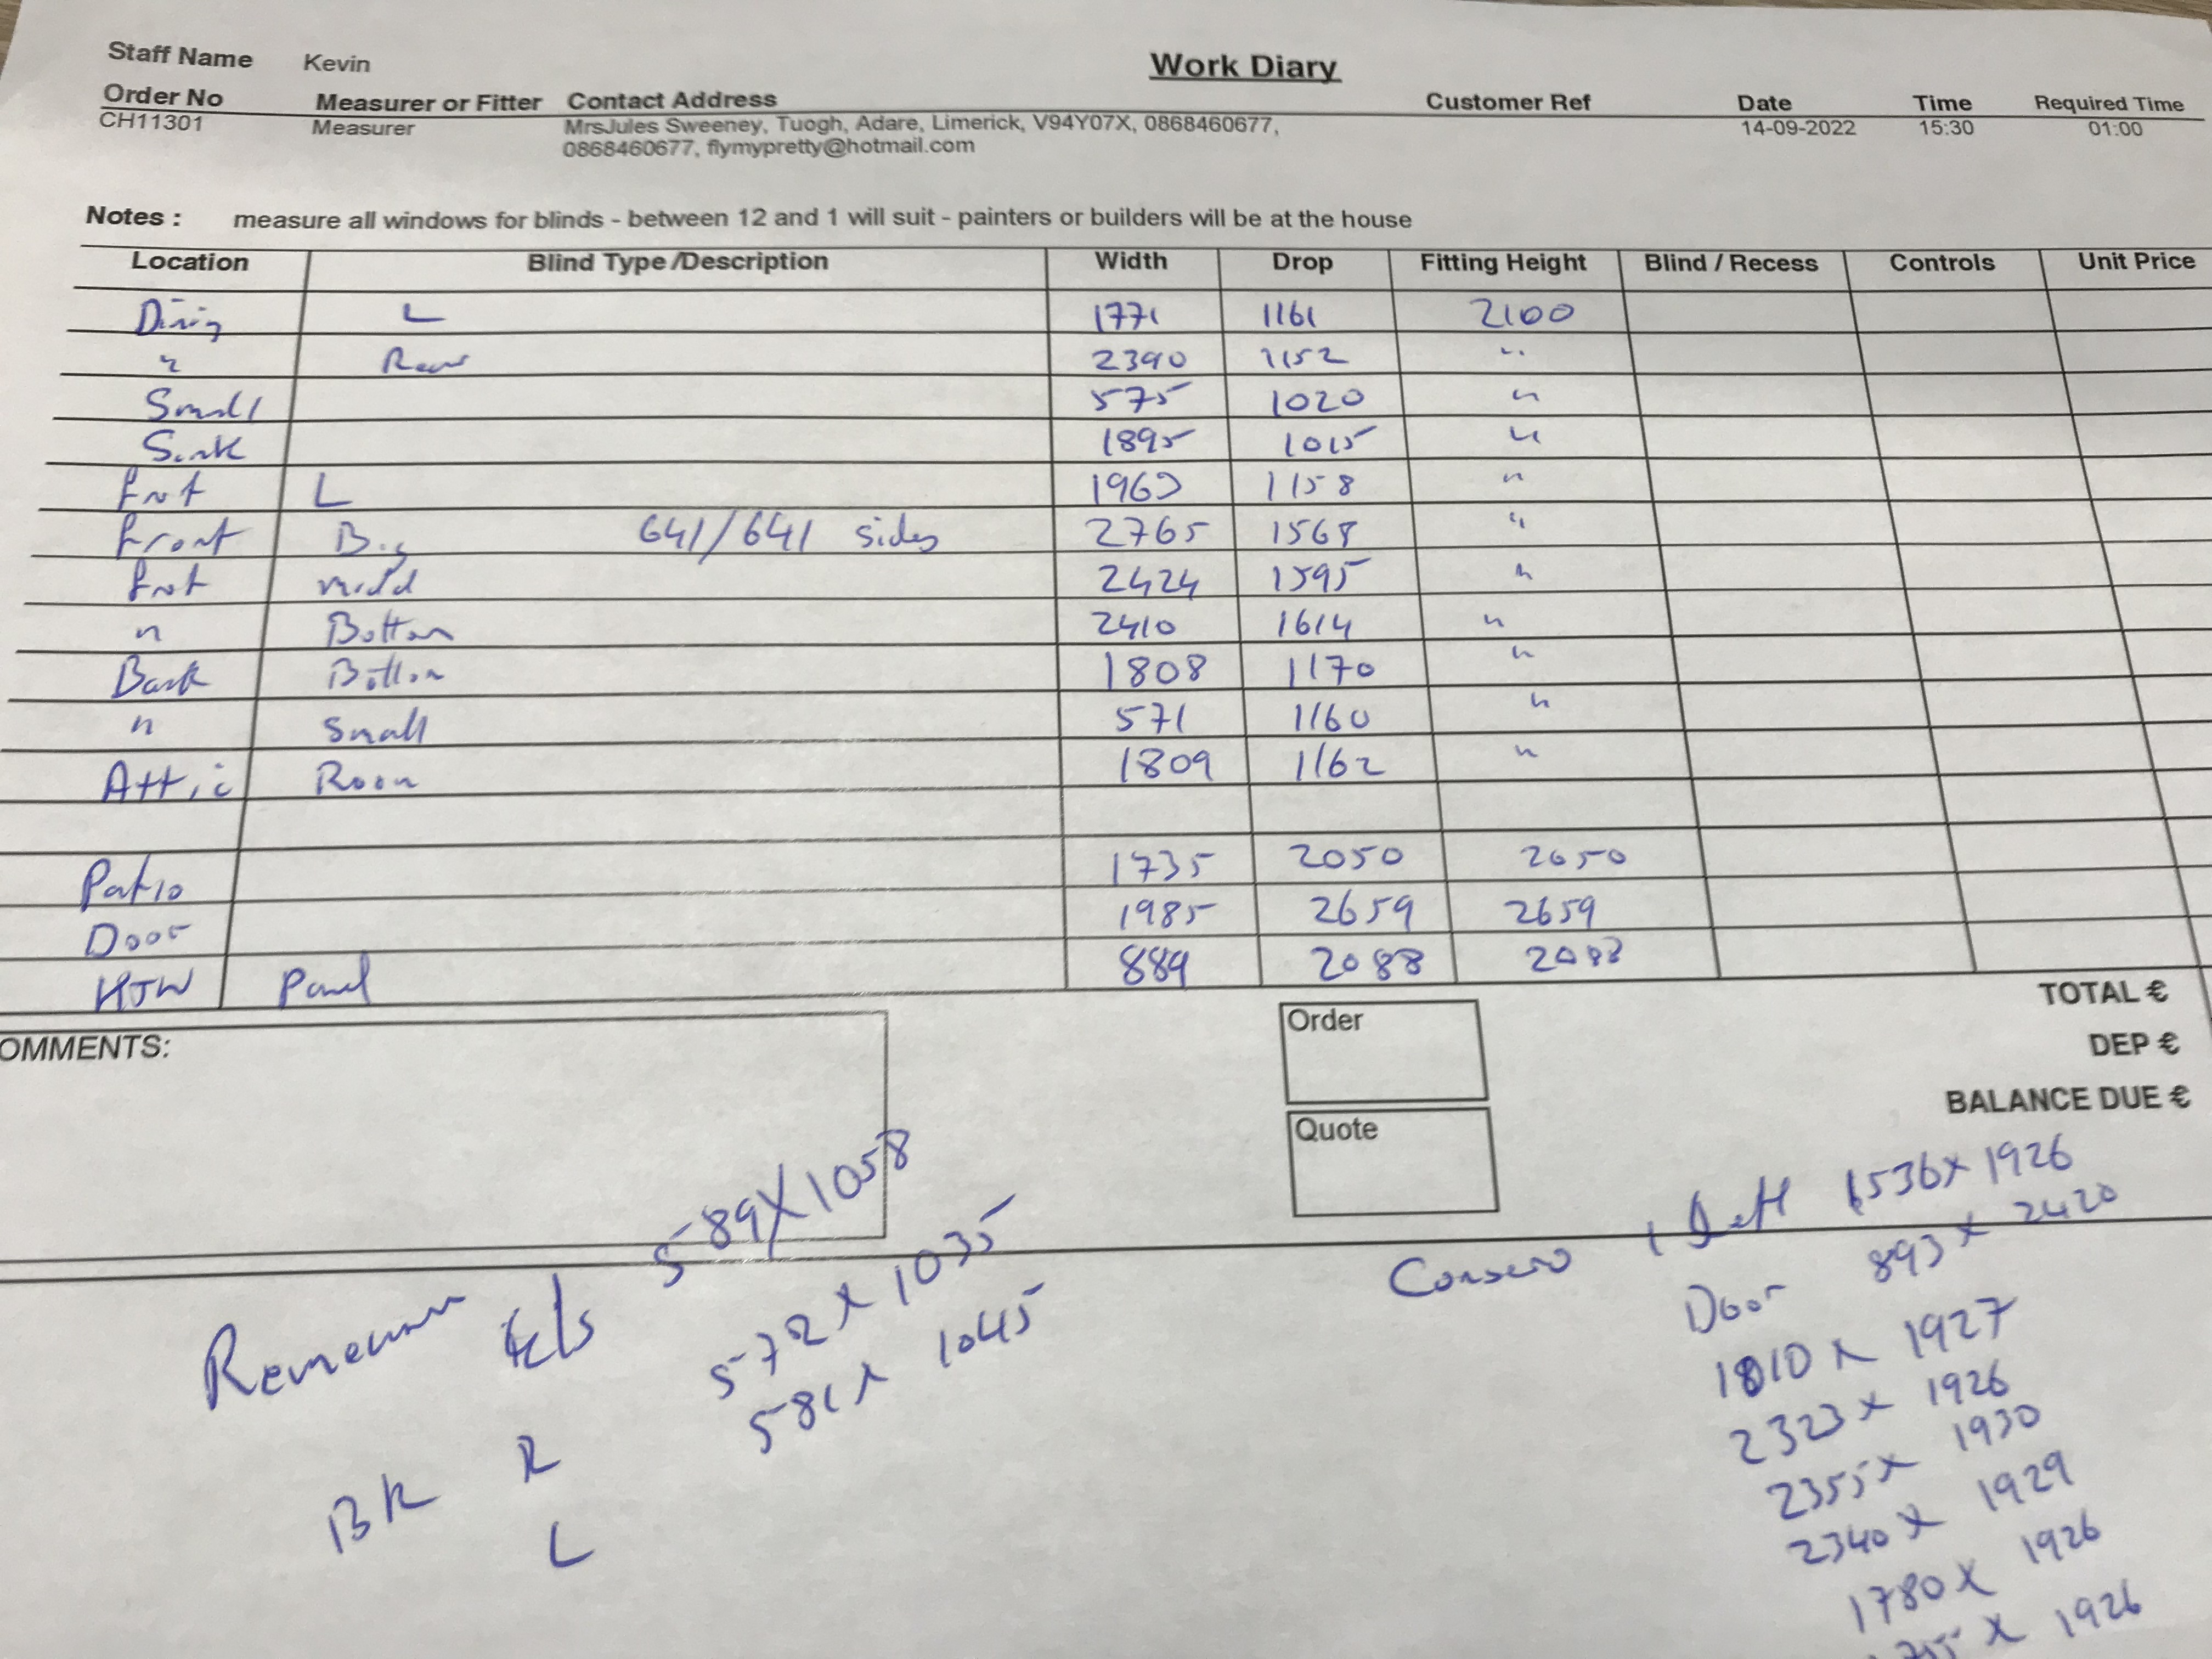 Work Diary
Staff Name Kevin
Order No Measurer or Fitter Contact Address Customer Ref Date Time Required Time
CH11301 Measurer MrsJules Sweeney, Tuogh, Adare, Limerick, V94Y07X, 0868460677, 14-09-2022 15:30 01:00
0868460677, flymypretty@hotmail.com
Notes : measure all windows for blinds - between 12 and 1 will suit - painters or builders will be at the house
Location Blind Type /Description Width Drop Fitting Height Blind / Recess Controls Unit Price
Dining L 1771 1161 2100
" Rear 2390 1152 "
Small 575 1020 "
Sink 1895 1015 "
Frnt L 1158 "
Front Big 641/641 sides 2765 1568 "
Frnt midd 2424 1595 "
" Bottom 2410 1614 "
Back Bottom 1808 1170 "
" Small 571 1160 "
Attic Room 1809 1162 "
Patio 1735 2050 2050
Door 1985 2659 2659
Panel 889 2088 2088
TOTAL €
OMMENTS: Order
DEP €
BALANCE DUE €
Quote
589 X 1058
572 x 1035
581 x 1045
BK R
L
Left 1536 x 1926
Door 893 x 2420
1810 x 1927
2323 x 1926
2355 x 1930
2340 x 1929
1780 X 1926
x 1926